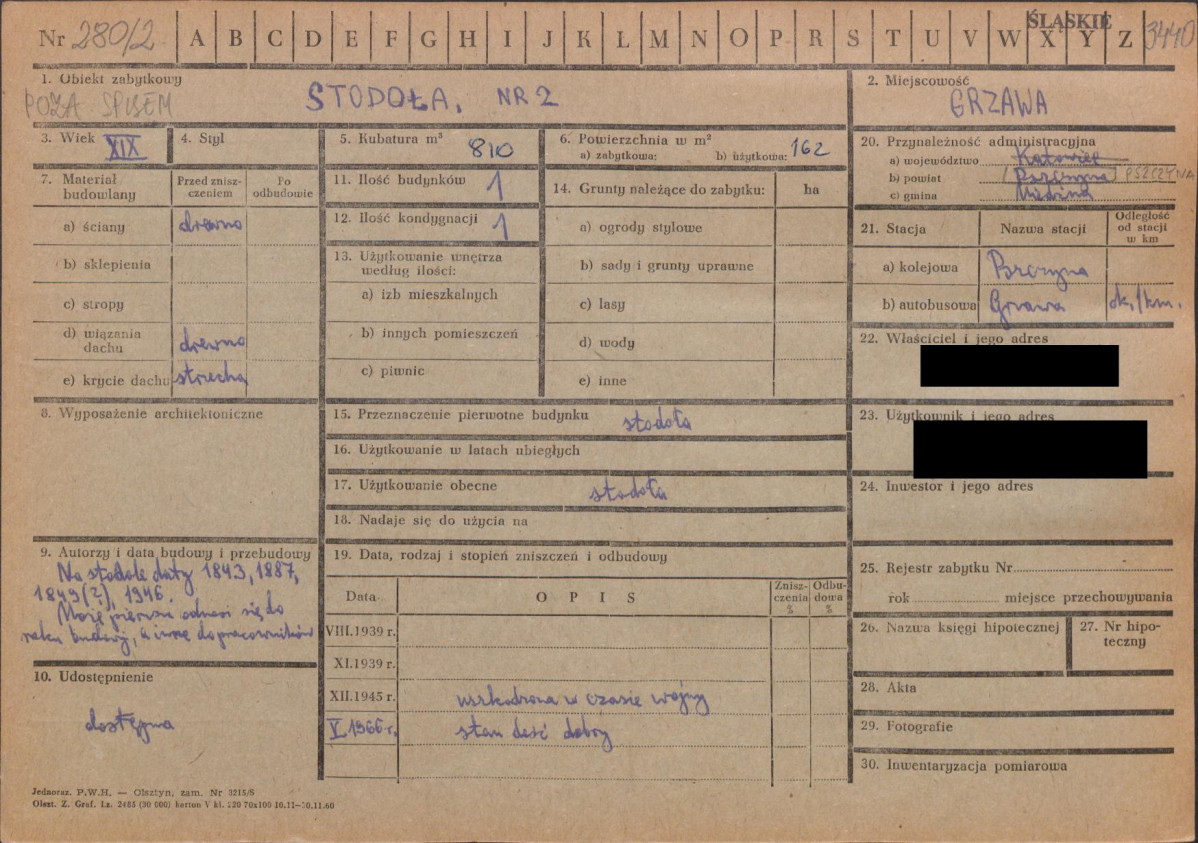 Nr 280/2 A B C D E F G H I J K L M N O P R S T U V W X Y Z 3440
ŚLĄSKIE
1. Obiekt zabytkowy
POZA SPISEM
STODOŁA. NR 2
2. Miejscowość
GRZAWA
3. Wiek XIX
4. Styl
5. Kubatura m³ 810
6. Powierzchnia w m²
a) zabytkowa: b) użytkowa: 162
7. Materiał budowlany
Przed zniszczeniem
Po odbudowie
a) ściany drewno
b) sklepienia
c) stropy
d) wiązania dachu drewno
e) krycie dachu strzecha
8. Wyposażenie architektoniczne
9. Autorzy i data budowy i przebudowy
Na stodole daty 1843, 1887,
1849(?), 1946.
Może pierwsza odnosi się do
roku budowy, a inne do pracowników
10. Udostępnienie
dostępna
11. Ilość budynków 1
12. Ilość kondygnacji 1
13. Użytkowanie wnętrza
według ilości:
a) izb mieszkalnych
b) innych pomieszczeń
c) piwnic
14. Grunty należące do zabytku: ha
a) ogrody stylowe
b) sady i grunty uprawne
c) lasy
d) wody
e) inne
15. Przeznaczenie pierwotne budynku stodoła
16. Użytkowanie w latach ubiegłych
17. Użytkowanie obecne stodoła
18. Nadaje się do użycia na
19. Data, rodzaj i stopień zniszczeń i odbudowy
Data OPIS Zniszczenia % Odbudowa %
VIII.1939 r.
XI.1939 r.
XII.1945 r. uszkodzona w czasie wojny
V 1966 r. stan dość dobry
20. Przynależność administracyjna
a) województwo Katowice
b) powiat Pszczyna PSZCZYNA
c) gmina Miedźna
21. Stacja Nazwa stacji Odległość od stacji w km
a) kolejowa Pszczyna
b) autobusowa Grzawa ok. 1 km.
22. Właściciel i jego adres
23. Użytkownik i jego adres
24. Inwestor i jego adres
25. Rejestr zabytku Nr
rok miejsce przechowywania
26. Nazwa księgi hipotecznej
27. Nr hipoteczny
28. Akta
29. Fotografie
30. Inwentaryzacja pomiarowa
Jednoraz. P.W.H. — Olsztyn, zam. Nr 3215/S
Olszt. Z. Graf. Lz. 2485 (30 000) karton V kl. 220 70x100 10.11—30.11.60